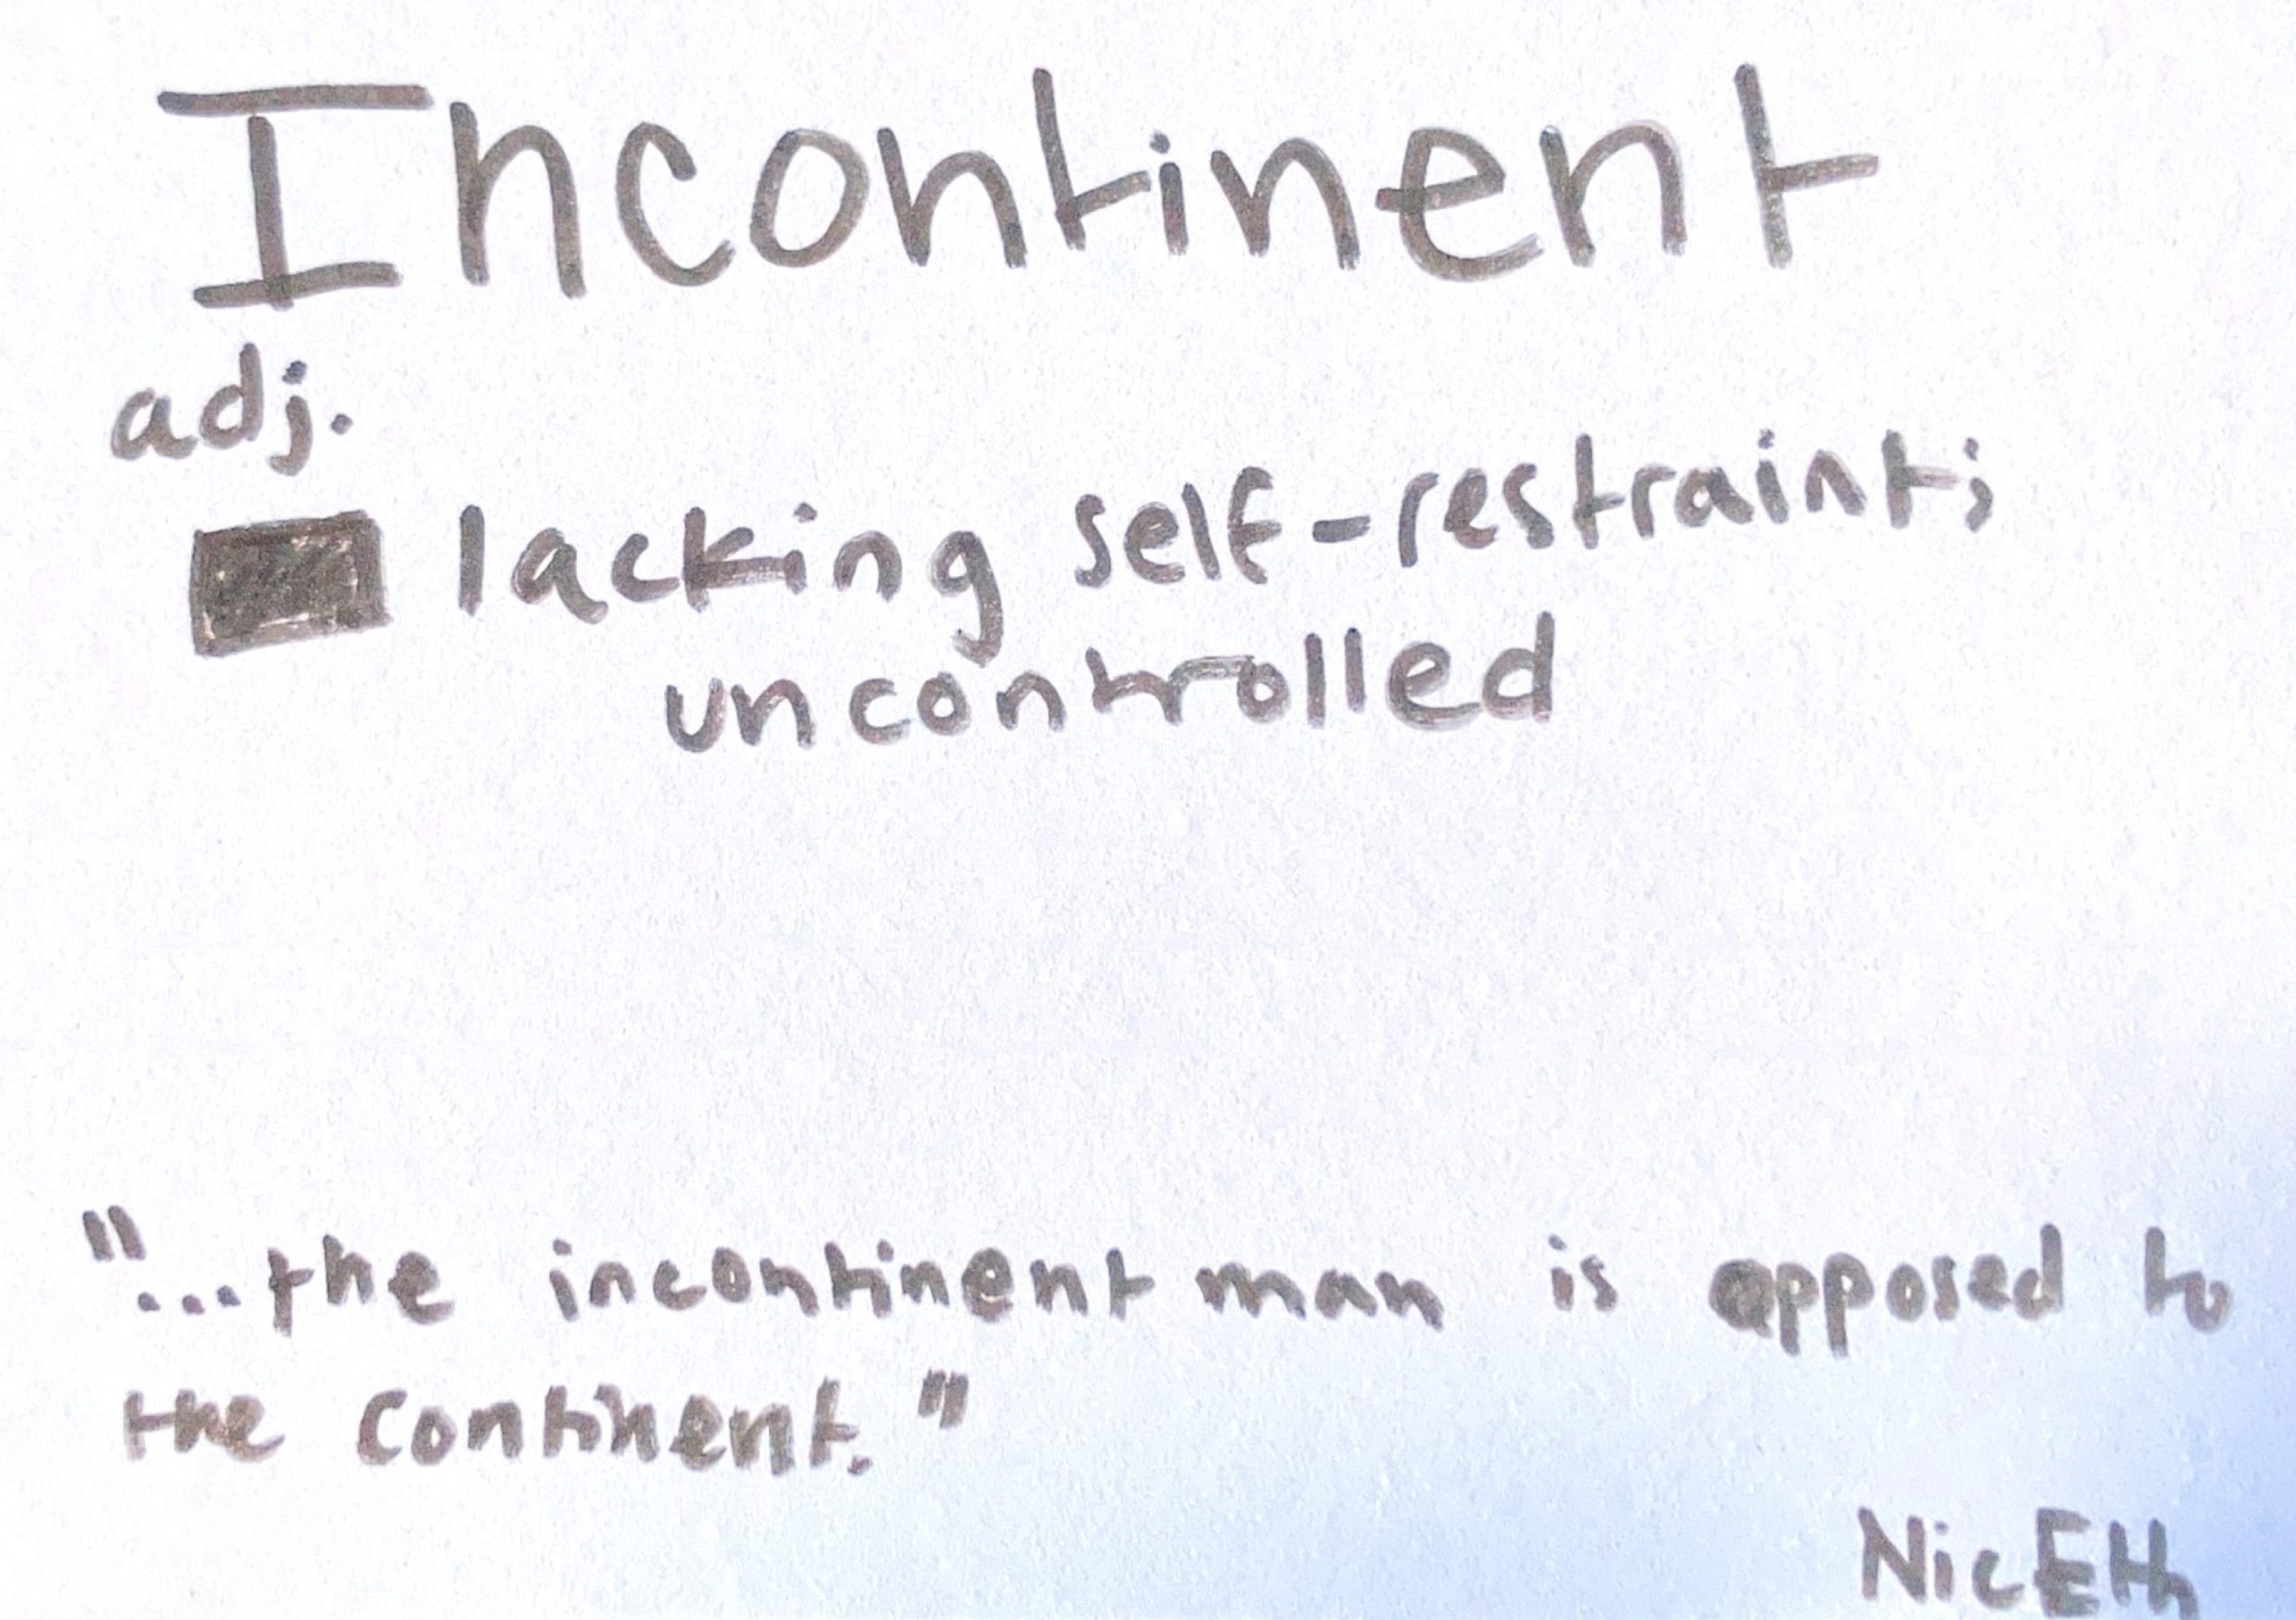 Incontinent
adj.
lacking self-restraint;
uncontrolled
"...the incontinent man is opposed to
the continent."
NicEth